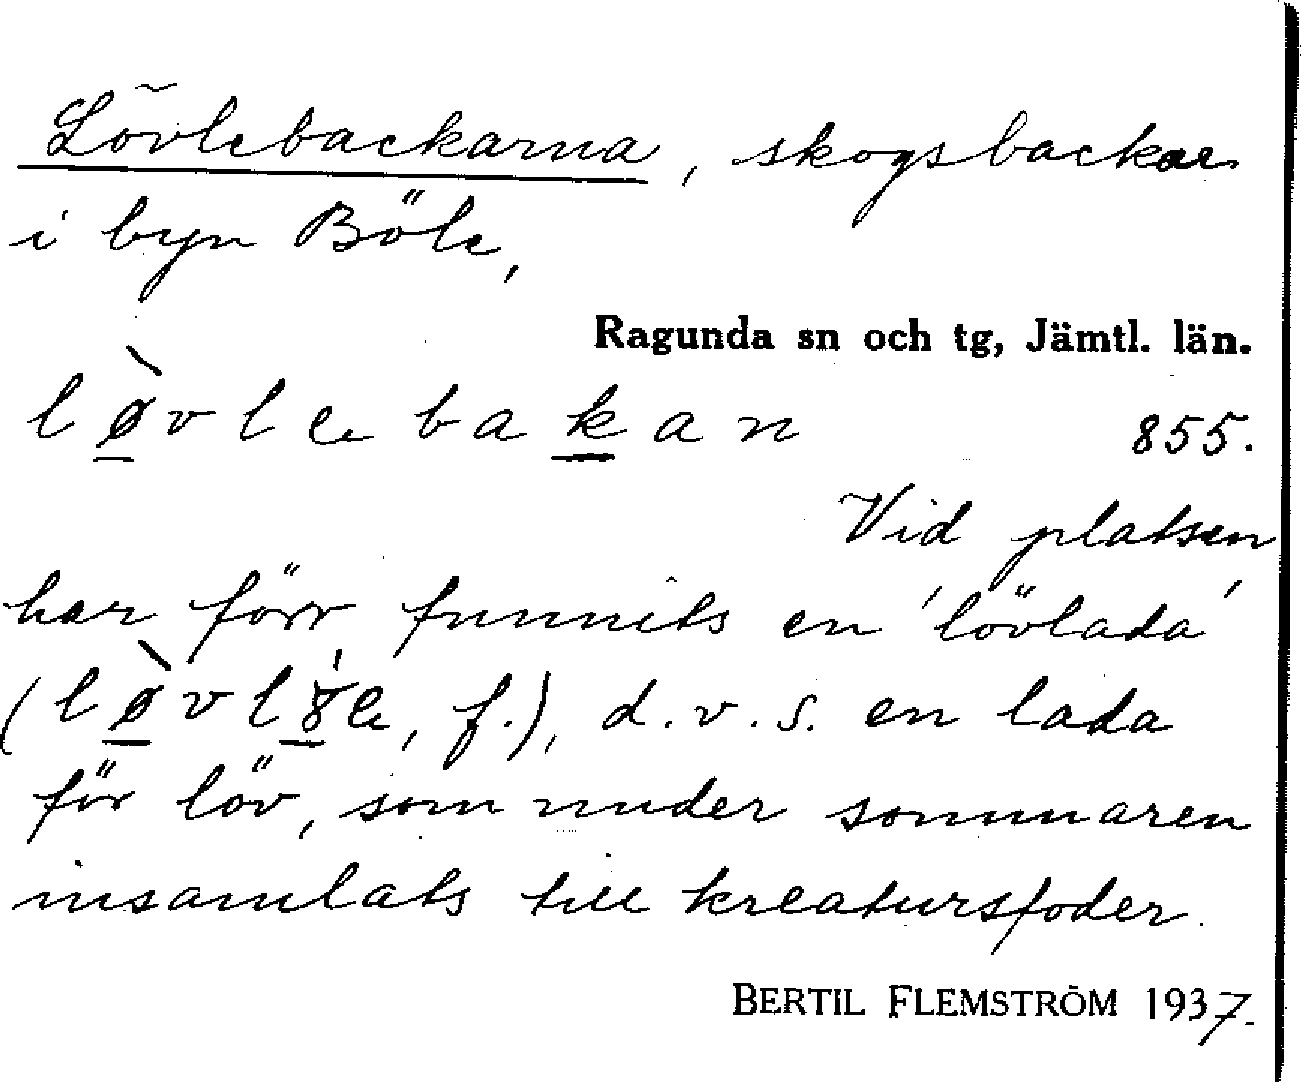 Lövlebackarna, skogsbackar
i byn Böle,
Ragunda sn och tg, Jämtl. län.
lø̀vlebakan 855.
Vid platsen
har förr funnits en 'lövlada'
(lø̀vlɤ́e, f.), d.v.s. en lada
för löv, som under sommaren
insamlats till kreatursfoder.
BERTIL FLEMSTRÖM 1937.